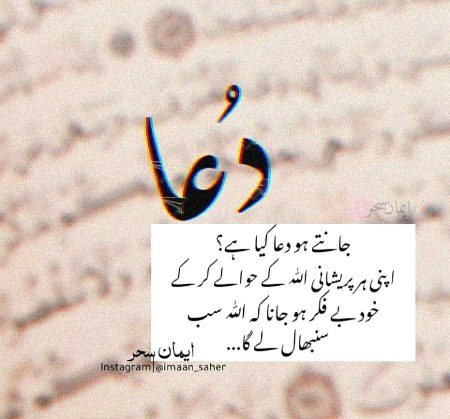 دُعا
ایمان سحر
جانتے ہو دعا کیا ہے؟
اپنی ہر پریشانی اللہ کے حوالے کر کے
خود بے فکر ہو جانا کہ اللہ سب
سنبھال لے گا...
ایمان سحر
Instagram|@imaan_saher